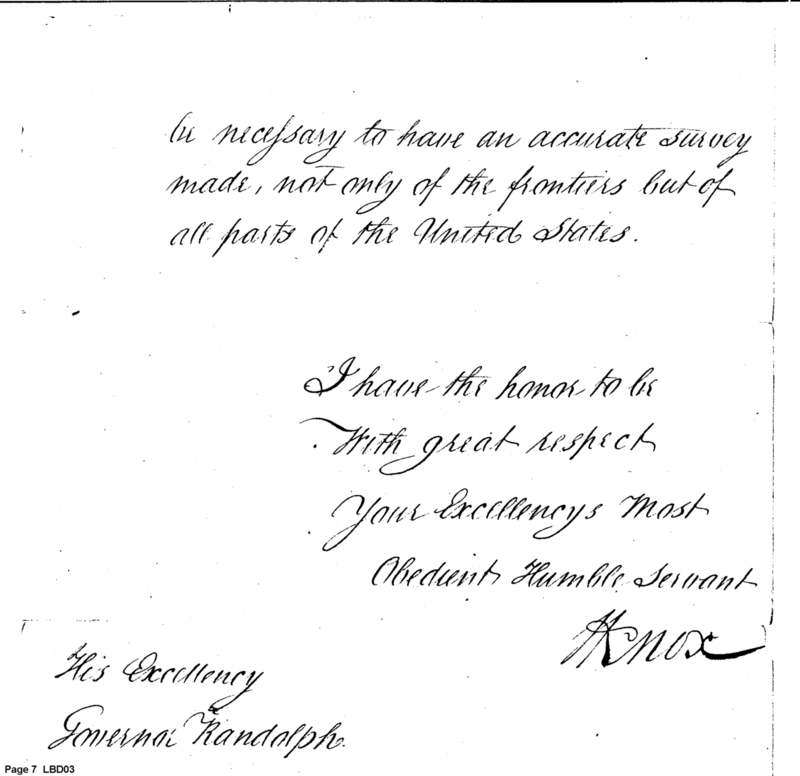 be necessary to have an accurate survey
made, not only of the frontiers but of
all parts of the United States.
I have the honor to be
With great respect
Your Excellencys Most
Obedient Humble Servant
HKnox
His Excellency
Governor Randolph.
Page 7 LBD03